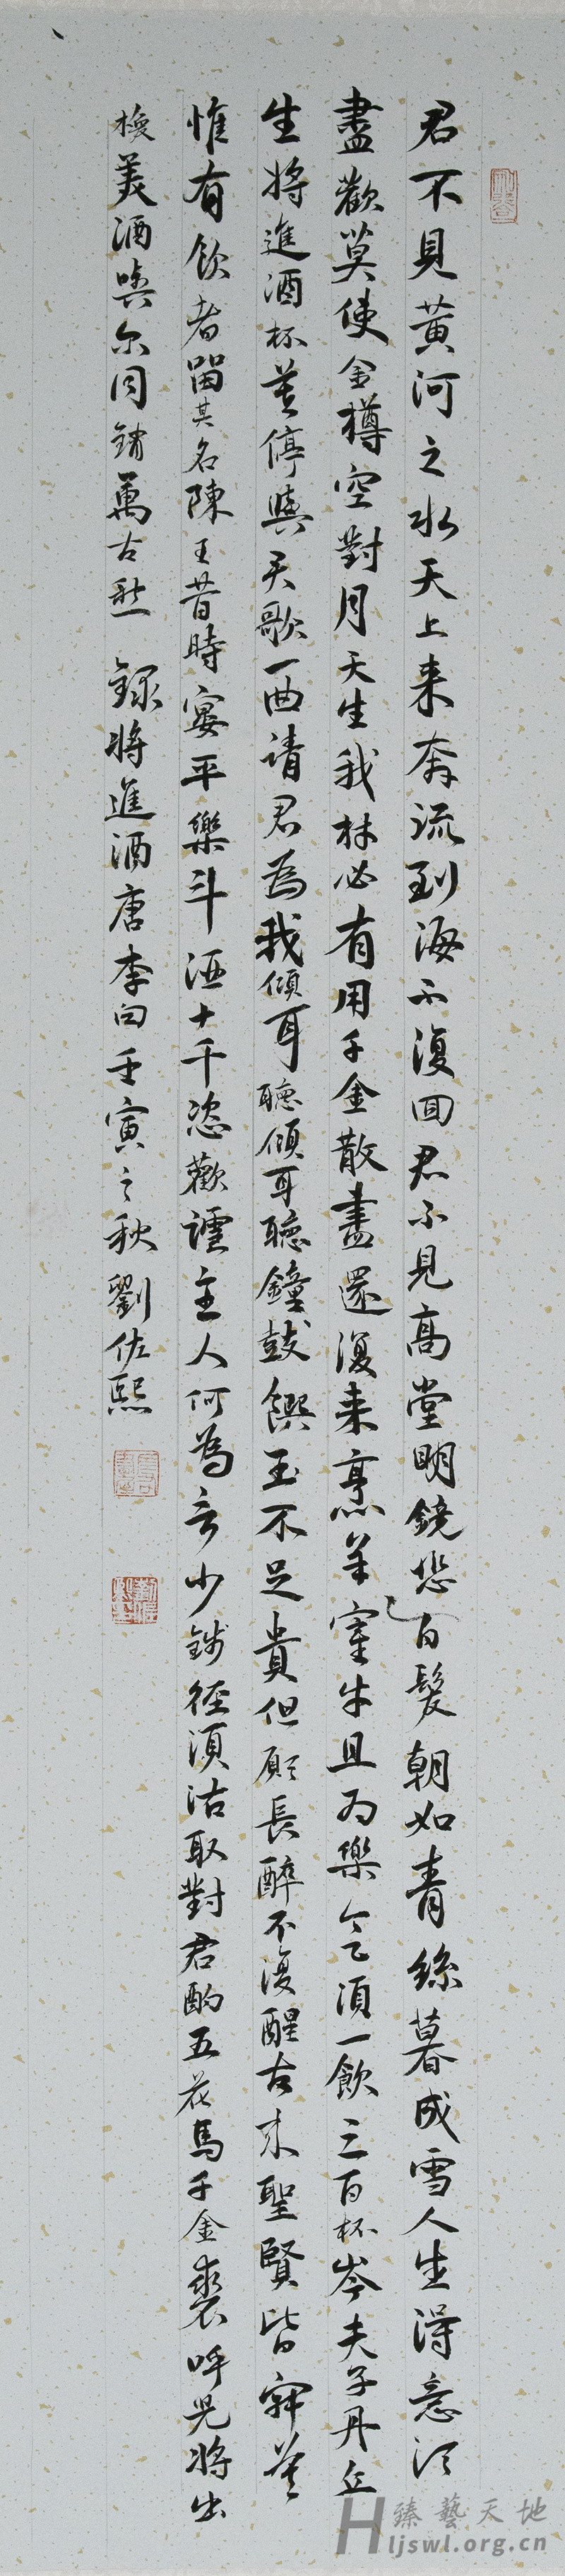 君不見黃河之水天上来奔流到海不復回君不見高堂明鏡悲白髮朝如青絲暮成雪人生得意須
盡歡莫使金樽空對月天生我材必有用千金散盡還復来烹羊宰牛且為樂會須一飲三百杯岑夫子丹丘
生將進酒杯莫停與君歌一曲請君為我傾耳聽傾耳聽鐘鼓饌玉不足貴但願長醉不復醒古来聖賢皆寂莫
惟有飲者留其名陳王昔時宴平樂斗酒十千恣歡謔主人何為言少錢徑須沽取對君酌五花馬千金裘呼兒將出
換美酒與尔同銷萬古愁 錄將進酒唐李白壬寅之秋劉佐熙
臻藝天地
Hljswl.org.cn